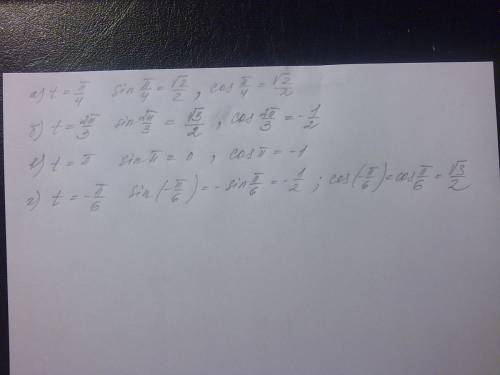 а) t = π/4 sin π/4 = √2/2 , cos π/4 = √2/2
б) t = 2π/3 sin 2π/3 = √3/2 , cos 2π/3 = -1/2
в) t = π sin π = 0 , cos π = -1
г) t = -π/6 sin(-π/6) = -sin π/6 = -1/2 ; cos(-π/6) = cos π/6 = √3/2